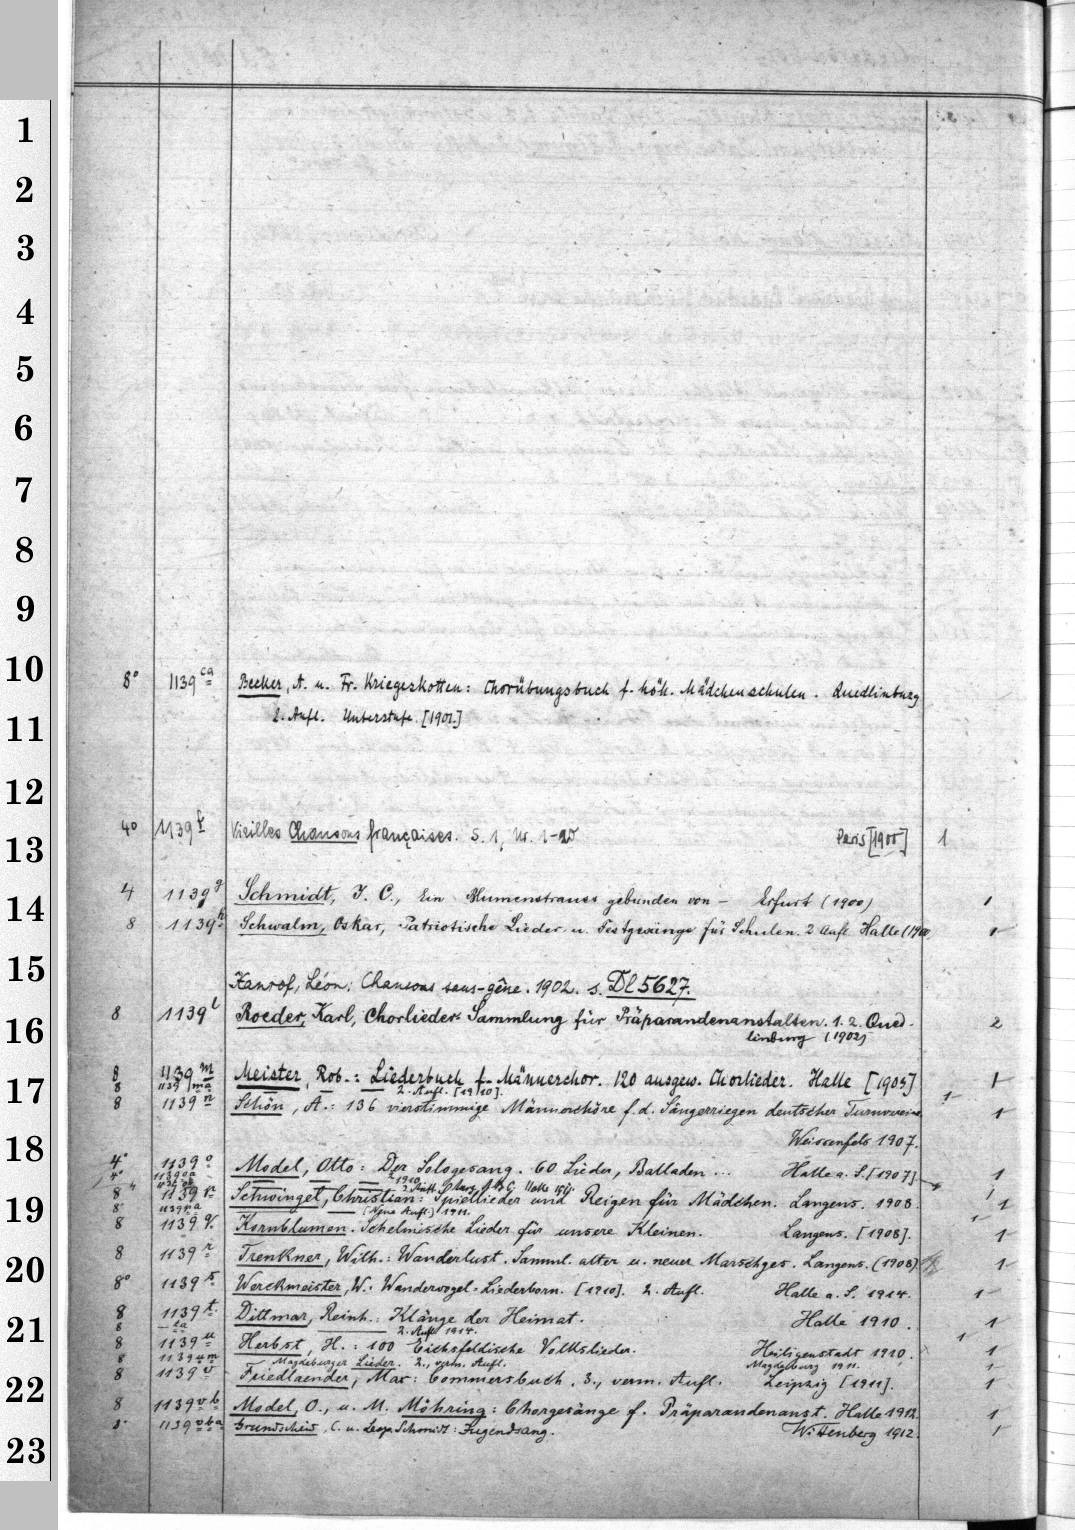 1
2
3
4
5
6
7
8
9
10
8° 1139 ca Becker, A. u. Fr. Kriegeskotten: Chorübungsbuch f. höh. Mädchenschulen. Quedlinburg
2. Aufl. Unterstufe. [1901.]
11
12
4° 1139 f Vieilles Chansons françaises. S. 1, Nr. 1- Paris [1900] 1
13
4 1139 g Schmidt, J. C., Ein Blumenstrauss gebunden von — Erfurt (1900) 1
14
8 1139 h Schwalm, Oskar, Patriotische Lieder u. Festgesänge für Schulen. 2 Aufl. Halle (1900) 1
15
Xanrof, Léon: Chansons sans-gêne. 1902. s. Dl 5627.
8 1139 l Roeder, Karl, Chorlieder-Sammlung für Präparandenanstalten. 1. 2. Qued- 2
16
linburg (1902)
8 1139 m Meister, Rob.: Liederbuch f. Männerchor. 120 ausgew. Chorlieder. Halle [1905] 1
17
8 1139 ma — — 2. Aufl. [1910]. 1
8 1139 n Schön, A.: 136 vierstimmige Männerchöre f. d. Sängerriegen deutscher Turnvereine. 1
Weissenfels 1907.
18
4° 1139 o Model, Otto: Der Sologesang. 60 Lieder, Balladen ... Halle a. S. [1907] 1
4° 1139 oa — — — 2. 1910. 1
8 1139 p Schwinget, Christian: Spiellieder und Reigen für Mädchen. Langens. 1908. 1
19
8° 1139 pa — [Neue Aufl.] 1911. 1
8 1139 q Kornblumen. Schelmische Lieder für unsere Kleinen. Langens. [1908]. 1
8 1139 r Trenkner, Wilh.: Wanderlust. Samml. alter u. neuer Marschges. Langens. (1908) 1
20
8° 1139 s Werckmeister, W.: Wandervogel-Liederborn. [1910]. 2. Aufl. Halle a. S. 1914. 1
8 1139 t Dittmar, Reinh.: Klänge der Heimat. Halle 1910. 1
21
8 ta — 2. Aufl. 1914. 1
8 1139 u Herbst, H.: 100 Eichsfeldische Volkslieder. Heiligenstadt 1910. 1
8 1139 um Magdeburger Lieder. 2., verm. Aufl. Magdeburg 1911. 1
8 1139 v Friedlaender, Max: Commersbuch. 3., verm. Aufl. Leipzig [1911]. 1
22
8 1139 vb Model, O., u. M. Möhring: Chorgesänge f. Präparandenanst. Halle 1912. 1
8° 1139 vba Grundscheid, C. u. Leop. Schmidt: Jugendsang. Wittenberg 1912. 1
23